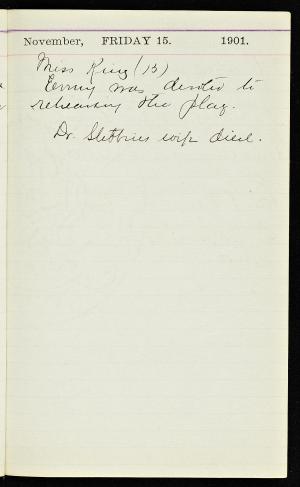 November, FRIDAY 15. 1901.
Miss King (13)
Evening was devoted to
rehearsing the play.
Dr. Stebbins wife died.